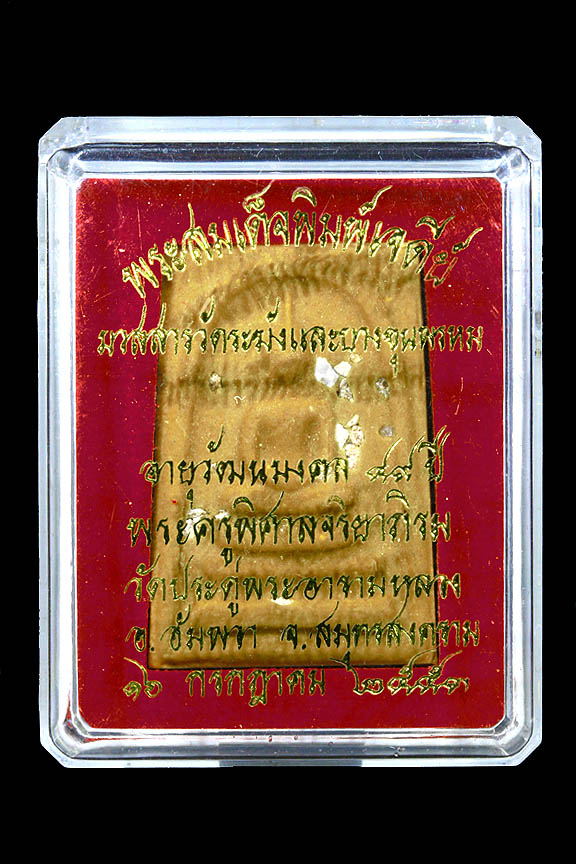 พระสมเด็จพิมพ์เจดีย์
มวลสารวัดระฆังและบางขุนพรหม
อายุวัฒนมงคล ๔๙ ปี
พระครูพิศาลจริยาภิรม
วัดประดู่พระอารามหลวง
อ. อัมพวา จ. สมุทรสงคราม
๑๖ กรกฎาคม ๒๕๕๓